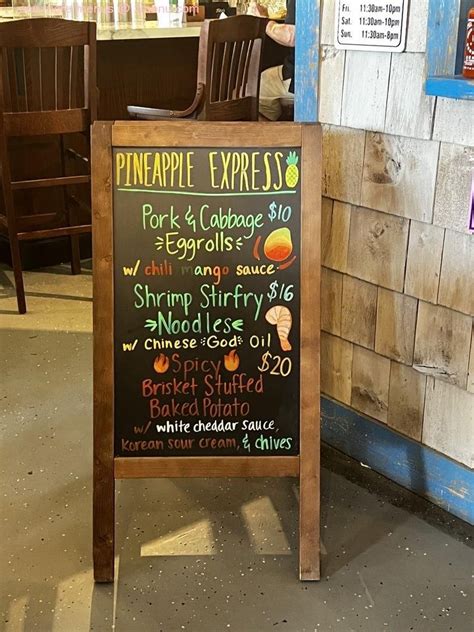 Fri. 11:30am-10pm
Sat. 11:30am-10pm
Sun. 11:30am-8pm
PINEAPPLE EXPRESS
Pork & Cabbage $10
Eggrolls
w/ chili mango sauce
Shrimp Stirfry $16
Noodles
w/ Chinese "God" Oil
Spicy $20
Brisket Stuffed
Baked Potato
w/ white cheddar sauce,
Korean sour cream, & chives